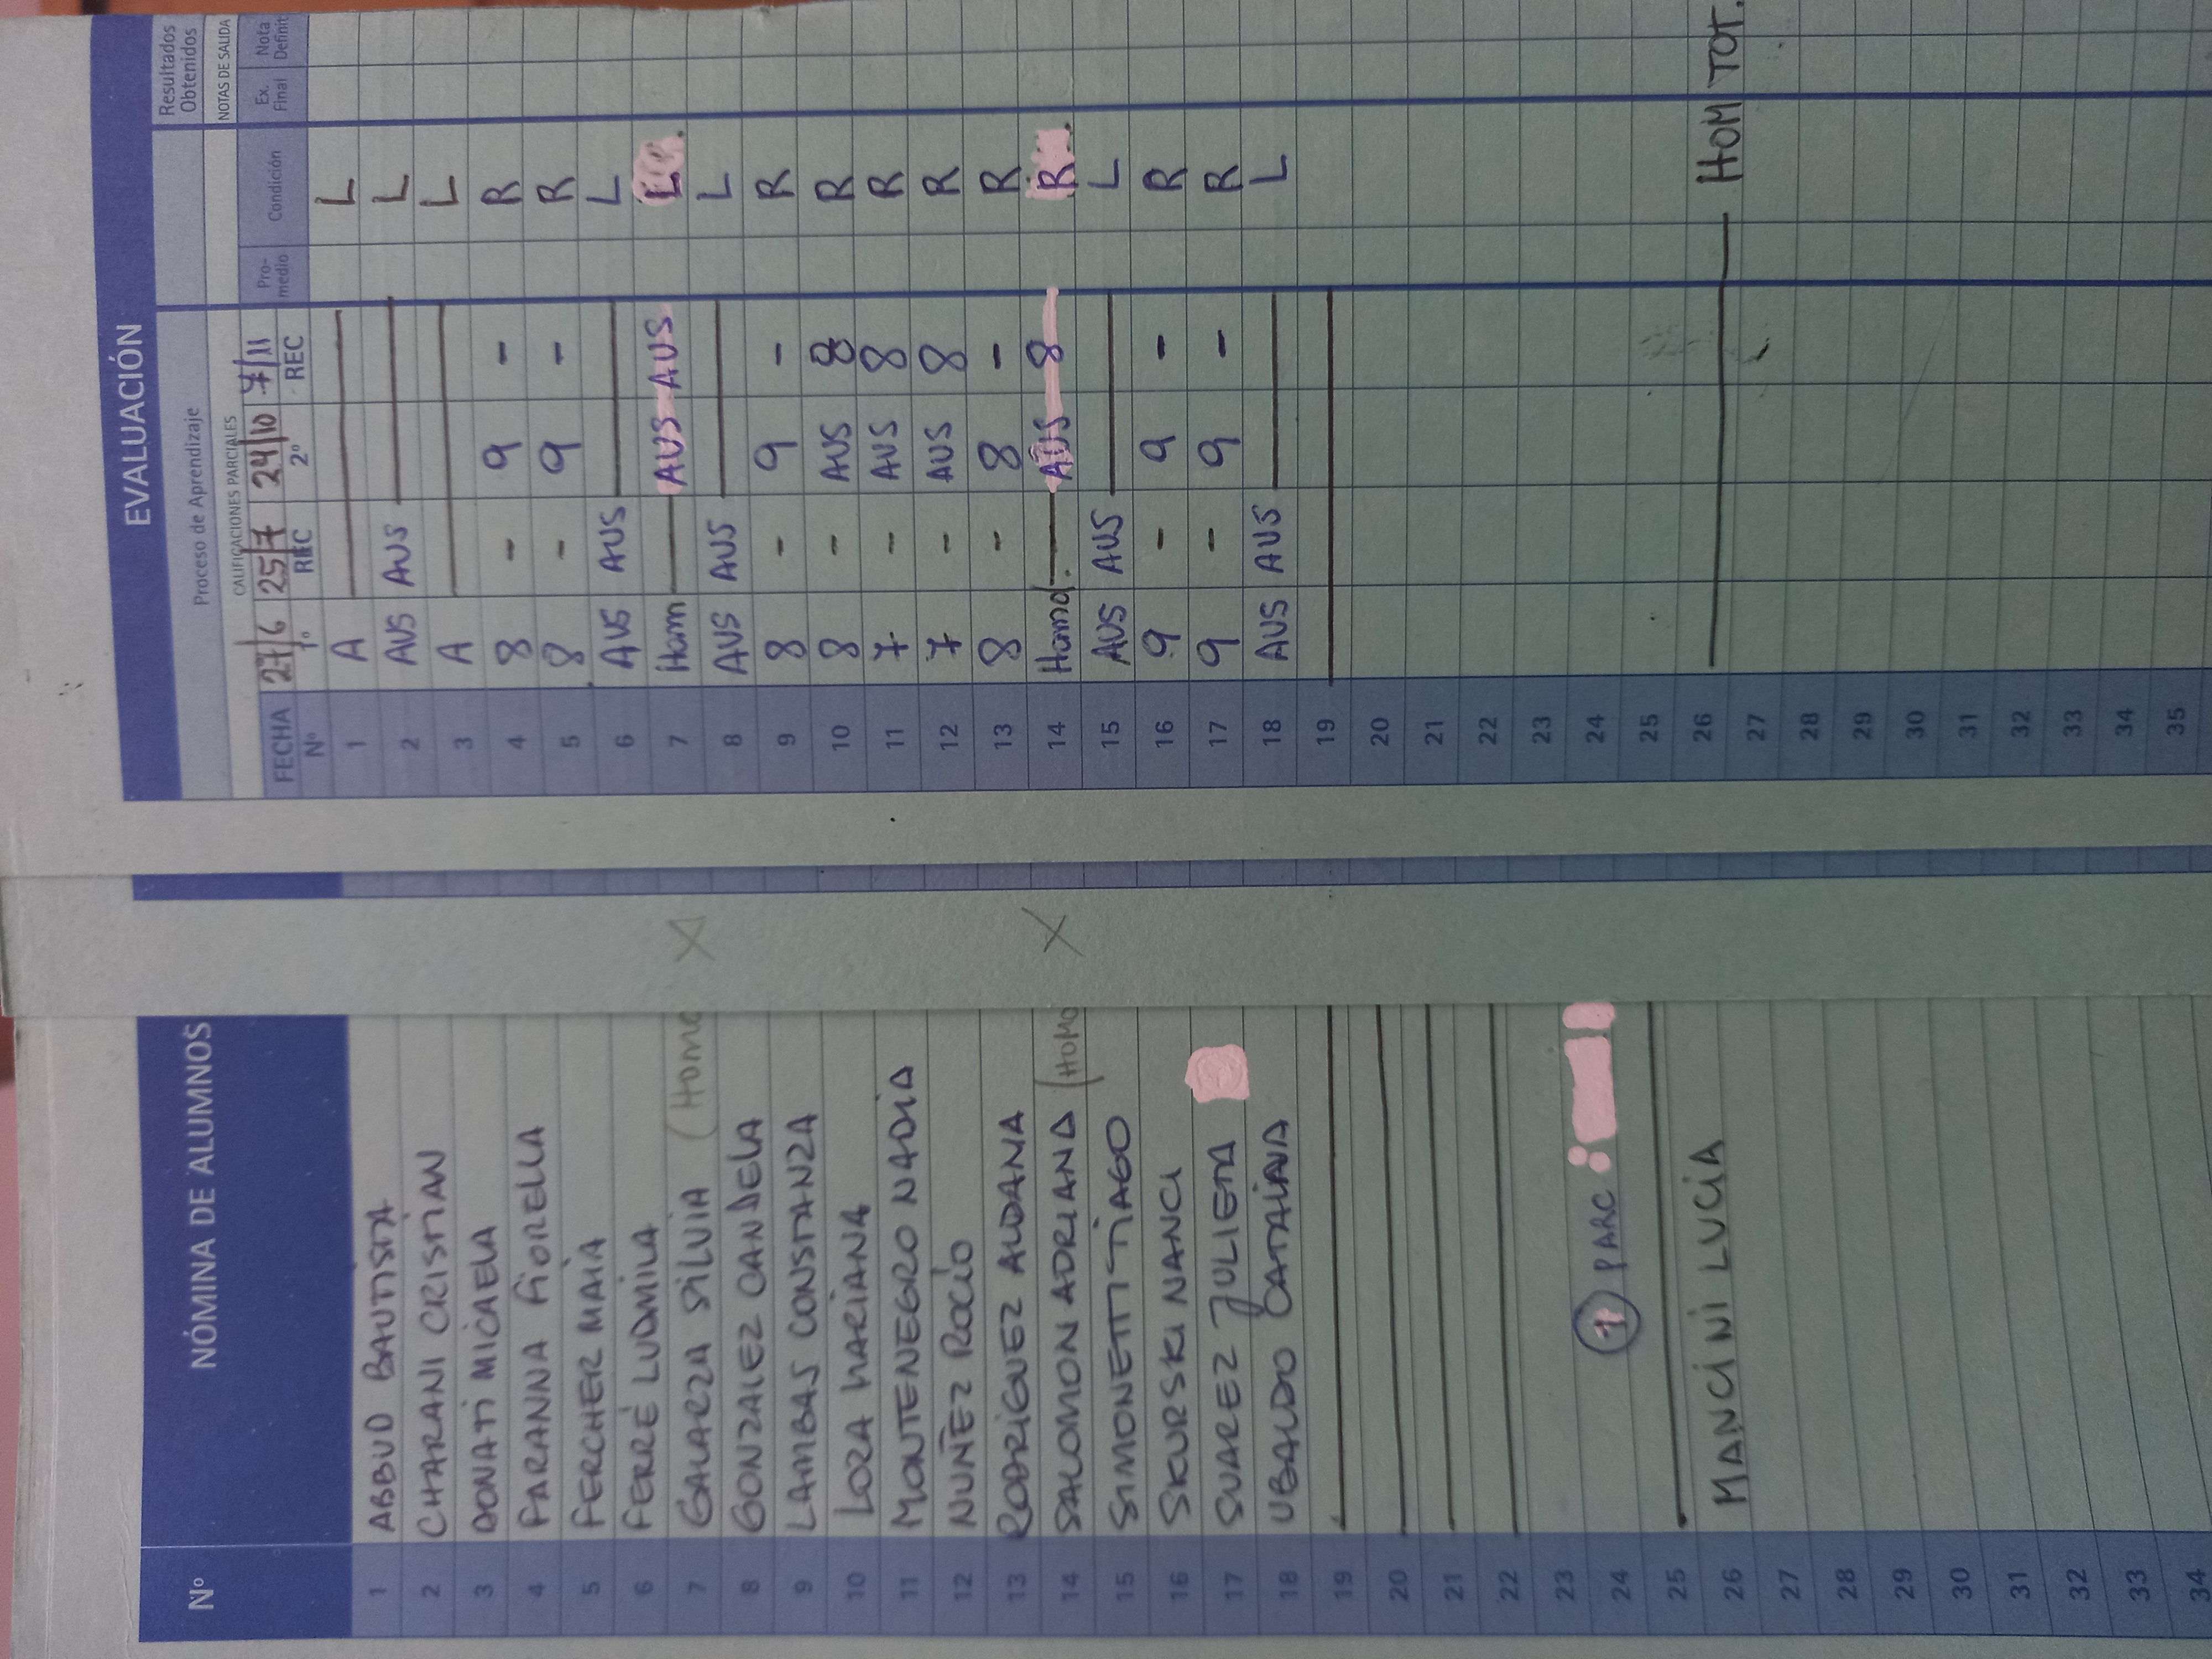 Nº NÓMINA DE ALUMNOS
1 ABBUD BAUTISTA
2 CHARANI CRISTIAN
3 DONATI MICAELA
4 FARANNA FIORELLA
5 FERCHER MAIA
6 FERRÉ LUDMILA
7 GALARZA SILVIA (HOMO X
8 GONZALEZ CANDELA
9 LAMBAS CONSTANZA
10 LOZA MARIANA
11 MONTENEGRO NADIA
12 NUÑEZ ROCIO
13 RODRIGUEZ ALDANA
14 SALOMON ADRIANA (HOMO X
15 SIMONETTI TIAGO
16 SKURSKI NANCI
17 SUAREZ JULIETA
18 UBALDO CATALINA
19
20
21
22
23
24 1 PARC
25
26 MANCINI LUCIA
27
28
29
30
31
32
33
34
EVALUACIÓN
Proceso de Aprendizaje
Resultados Obtenidos
CALIFICACIONES PARCIALES
NOTAS DE SALIDA
FECHA 27/6 25/7 24/10 7/11 Pro-medio Condición Ex. Final Nota Definit
Nº 1º REC 2º REC
1 A L
2 AUS AUS L
3 A L
4 8 - 9 - R
5 8 - 9 - R
6 AUS AUS L
7 Hom AUS AUS L
8 AUS AUS L
9 8 - 9 - R
10 8 - AUS 8 R
11 7 - AUS 8 R
12 7 - AUS 8 R
13 8 - 8 - R
14 Homo. AUS 8 R
15 AUS AUS L
16 9 - 9 - R
17 9 - 9 - R
18 AUS AUS L
19
20
21
22
23
24
25
26 HOM TOT.
27
28
29
30
31
32
33
34
35